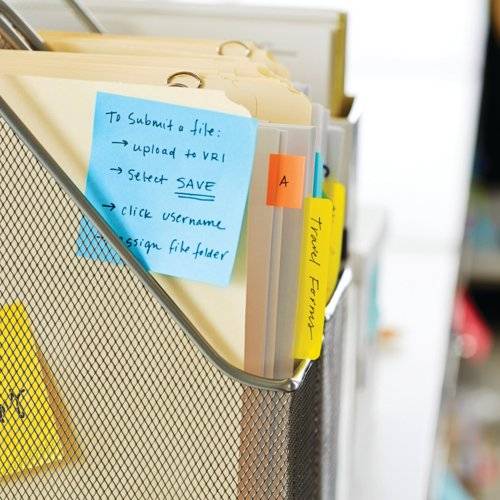 To Submit a file:
→ upload to VR1
→ Select SAVE
→ click username
→ assign file folder
A
Travel Forms